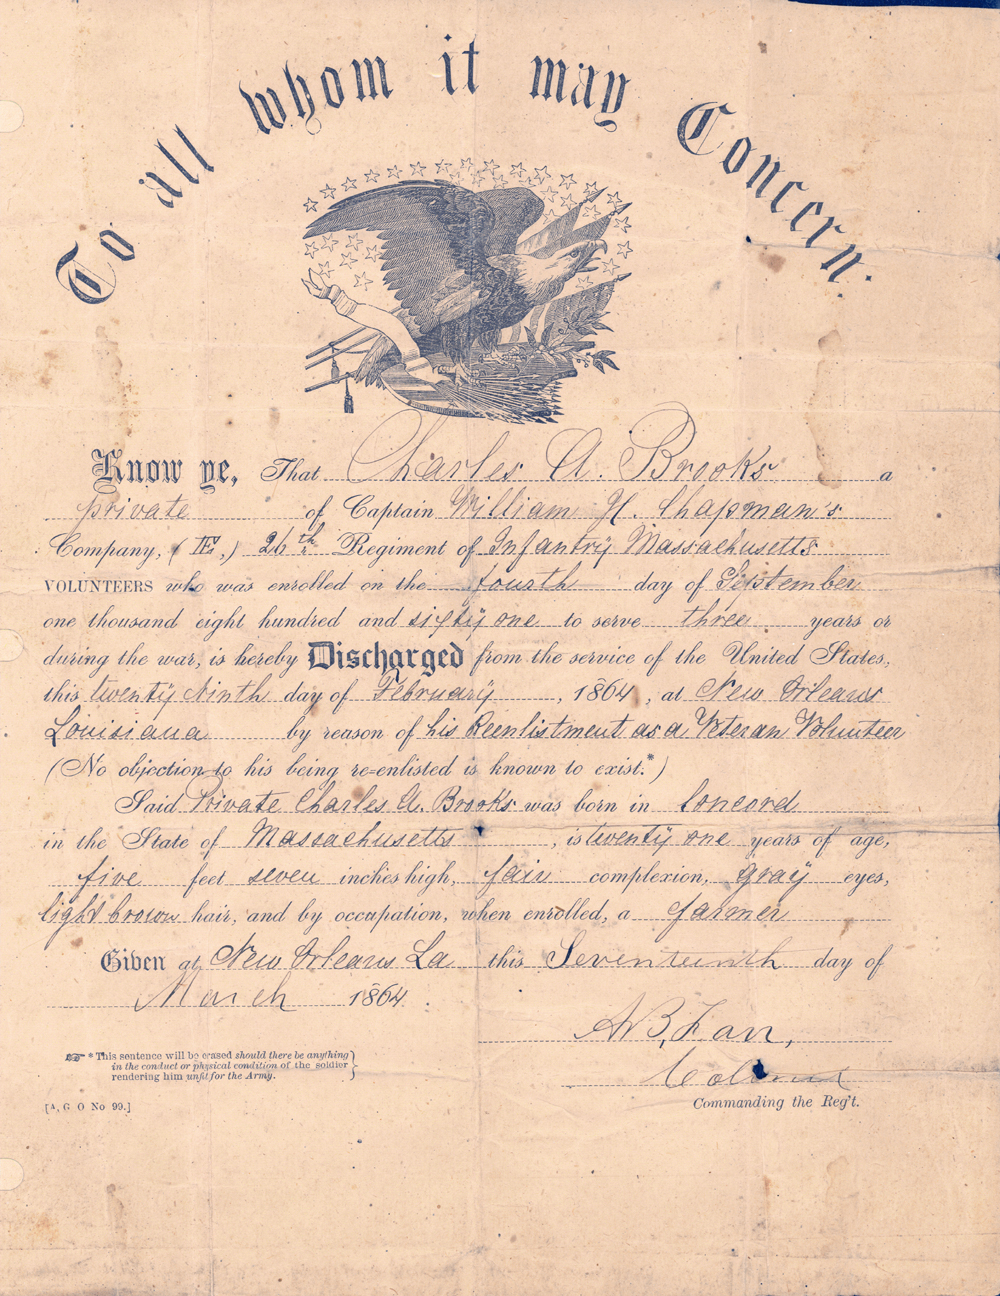 To all whom it may Concern.
Know ye, That Charles A. Brooks a
private of Captain William H. Chapman's
Company, (E,) 26th Regiment of Infantry Massachusetts
VOLUNTEERS who was enrolled on the fourth day of September
one thousand eight hundred and sixty one to serve three years or
during the war, is hereby Discharged from the service of the United States,
this twenty ninth day of February, 1864, at New Orleans
Louisiana by reason of his Reenlistment as a Veteran Volunteer
(No objection to his being re-enlisted is known to exist.*)
Said Private Charles A. Brooks was born in Concord
in the State of Massachusetts, is twenty one years of age,
five feet seven inches high, fair complexion, gray eyes,
light brown hair, and by occupation, when enrolled, a farmer
Given at New Orleans La this Seventeenth day of
March 1864.
A B, Farr,
Colonel
Commanding the Reg't.
☞ * This sentence will be erased should there be anything
in the conduct or physical condition of the soldier
rendering him unfit for the Army.
[A, G O No 99.]